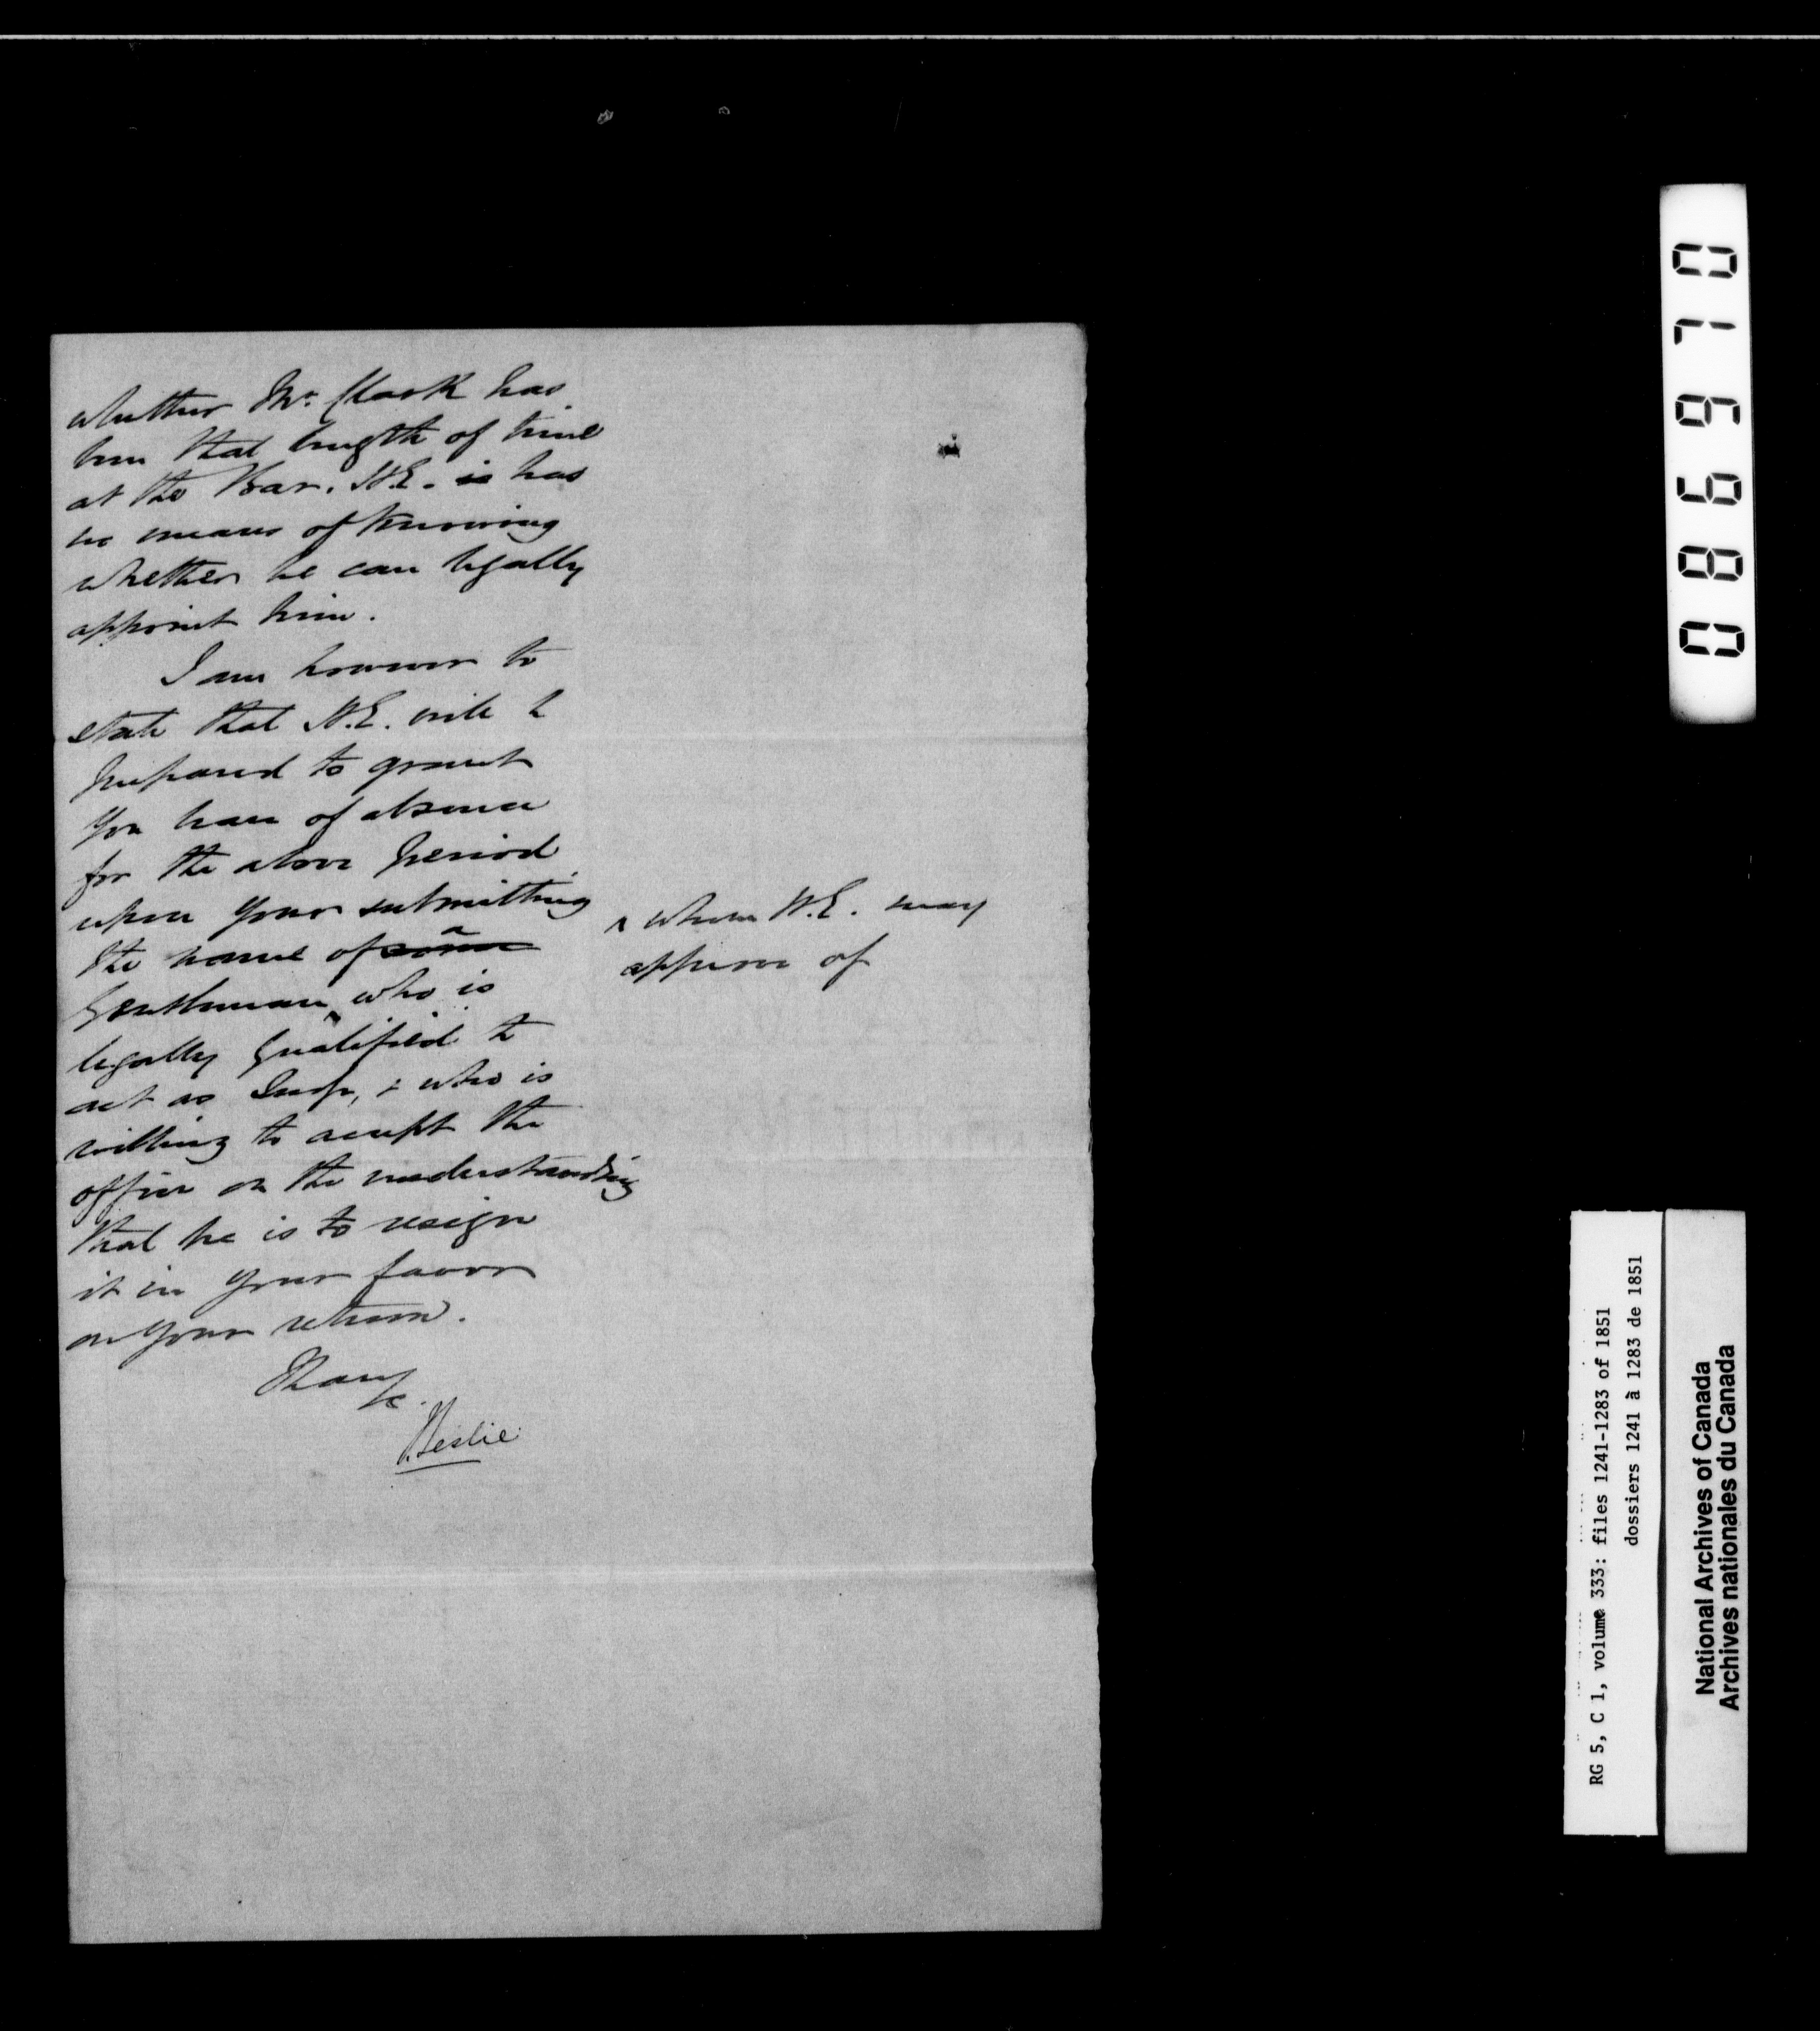 whether Mr. Clark has
been that length of time
at the Bar. H.E. is has
no means of knowing
whether he can legally
appoint him.
I am however to
state that H.E. will be
prepared to grant
you leave of absence
for the above period
upon your submitting
the name of some a
Gentleman ^ who is
legally qualified to
act as Judge, & who is
willing to accept the
office on the understanding
that he is to resign
it in your favor
on your return.
I have
&c.
J. Leslie
^ whom H.E. may
approve of
086970
RG 5, C 1, volume 333: files 1241-1283 of 1851
dossiers 1241 à 1283 de 1851
National Archives of Canada
Archives nationales du Canada